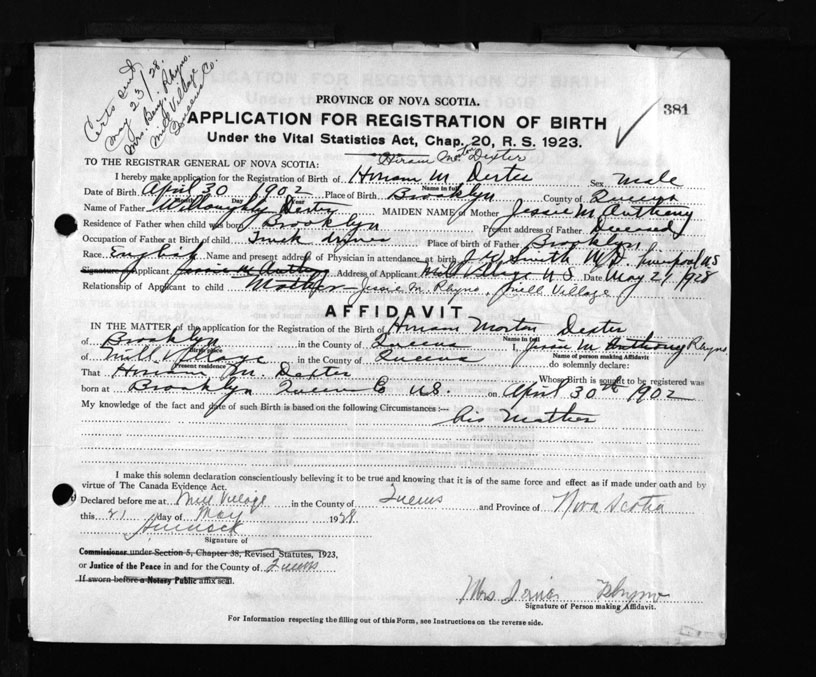 Certs cert
May 23/28.
Mrs. Benj. Rhyno.
Mill Village
Queens Co.
381
PROVINCE OF NOVA SCOTIA.
APPLICATION FOR REGISTRATION OF BIRTH
Under the Vital Statistics Act, Chap. 20, R. S. 1923.
Hiram Morton Dexter
TO THE REGISTRAR GENERAL OF NOVA SCOTIA:
I hereby make application for the Registration of Birth of Hiram M Dexter Sex Male
Name in full
Date of Birth April 30 1902 Place of Birth Brooklyn County of Queens
Month Day Year
Name of Father Willoughby Dexter MAIDEN NAME of Mother Jessie M Anthony
Residence of Father when child was born Brooklyn Present address of Father Deceased
Occupation of Father at Birth of child Place of Birth of Father Brooklyn
Race English Name and present address of Physician in attendance at birth J W Smith M.D. Liverpool N.S
Signature of Applicant Jessie M Anthony Address of Applicant Mill Village N.S. Date May 21 1928
Relationship of Applicant to child Mother Jessie M. Rhyno, Mill Village
AFFIDAVIT
IN THE MATTER of the application for the Registration of the Birth of Hiram Morton Dexter
Name in full
of Brooklyn in the County of Queens I, Jessie M Anthony Rhyno
Birth place Name of person making Affidavit
of Mill Village in the County of Queens do solemnly declare:
Present residence
That Hiram M. Dexter Whose Birth is sought to be registered was
born at Brooklyn Queens Co N.S. on April 30th 1902
My knowledge of the fact and date of such Birth is based on the following Circumstances:—
his Mother
I make this solemn declaration conscientiously believing it to be true and knowing that it is of the same force and effect as if made under oath and by
virtue of The Canada Evidence Act.
Declared before me at Mill Village in the County of Queens and Province of Nova Scotia
this 21 day of May 1928
Signature of
Commissioner under Section 5, Chapter 38, Revised Statutes, 1923,
or Justice of the Peace in and for the County of Queens
If sworn before a Notary Public affix seal.
Mrs Jessie Rhyno
Signature of Person making Affidavit.
For Information respecting the filling out of this Form, see Instructions on the reverse side.